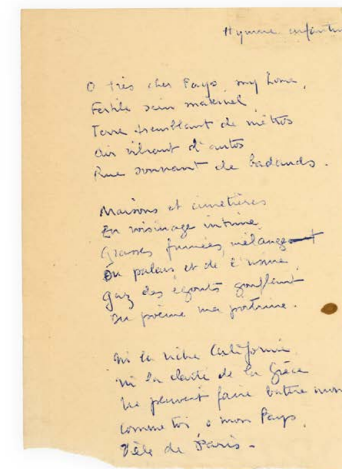 Hymne enfantin
O très cher Pays, my home,
Fertile sein maternel,
Terre tremblant de métros
Air vibrant d'autos
Rue sonnant de badauds.
Maisons et cimetières
En voisinage intime
Grasses fumées mélangent
Du palais et de l'usine,
Gaz des égouts gonflent
Du poème ma poitrine.
Ni la riche Californie
Ni la clarté de la Grèce
Ne peuvent faire battre mon
Comme toi, o mon Pays,
Ville de Paris -